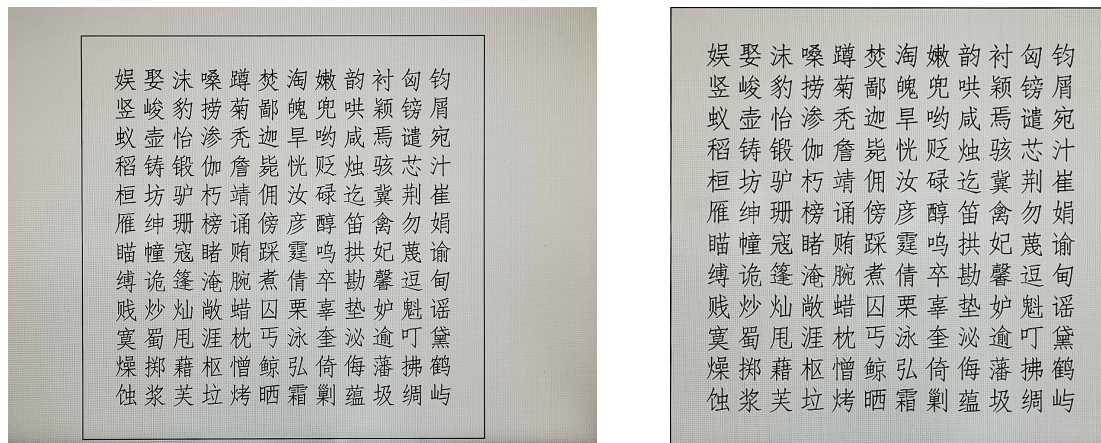 娱娶沫嗓蹲焚淘嫩韵衬匈钧
竖峻豹捞菊鄙魄兜哄颖镑屑
蚁壶怡渗秃迦旱哟咸焉谴宛
稻铸锻伽詹毙恍贬烛骇芯汁
桓坊驴朽靖佣汝碌迄冀荆崔
雁绅珊榜诵傍彦醇笛禽勿娟
瞄幢寇睹贿踩霆呜拱妃蔑谕
缚诡篷淹腕煮倩卒勘馨逗甸
贱炒灿敞蜡囚栗辜垫妒魁谣
寞蜀甩涯枕丐泳奎泌逾叮黛
燥掷藉枢憎鲸弘倚侮藩拂鹤
蚀浆芙垃烤晒霜剿蕴圾绸屿
娱娶沫嗓蹲焚淘嫩韵衬匈钧
竖峻豹捞菊鄙魄兜哄颖镑屑
蚁壶怡渗秃迦旱哟咸焉谴宛
稻铸锻伽詹毙恍贬烛骇芯汁
桓坊驴朽靖佣汝碌迄冀荆崔
雁绅珊榜诵傍彦醇笛禽勿娟
瞄幢寇睹贿踩霆呜拱妃蔑谕
缚诡篷淹腕煮倩卒勘馨逗甸
贱炒灿敞蜡囚栗辜垫妒魁谣
寞蜀甩涯枕丐泳奎泌逾叮黛
燥掷藉枢憎鲸弘倚侮藩拂鹤
蚀浆芙垃烤晒霜剿蕴圾绸屿